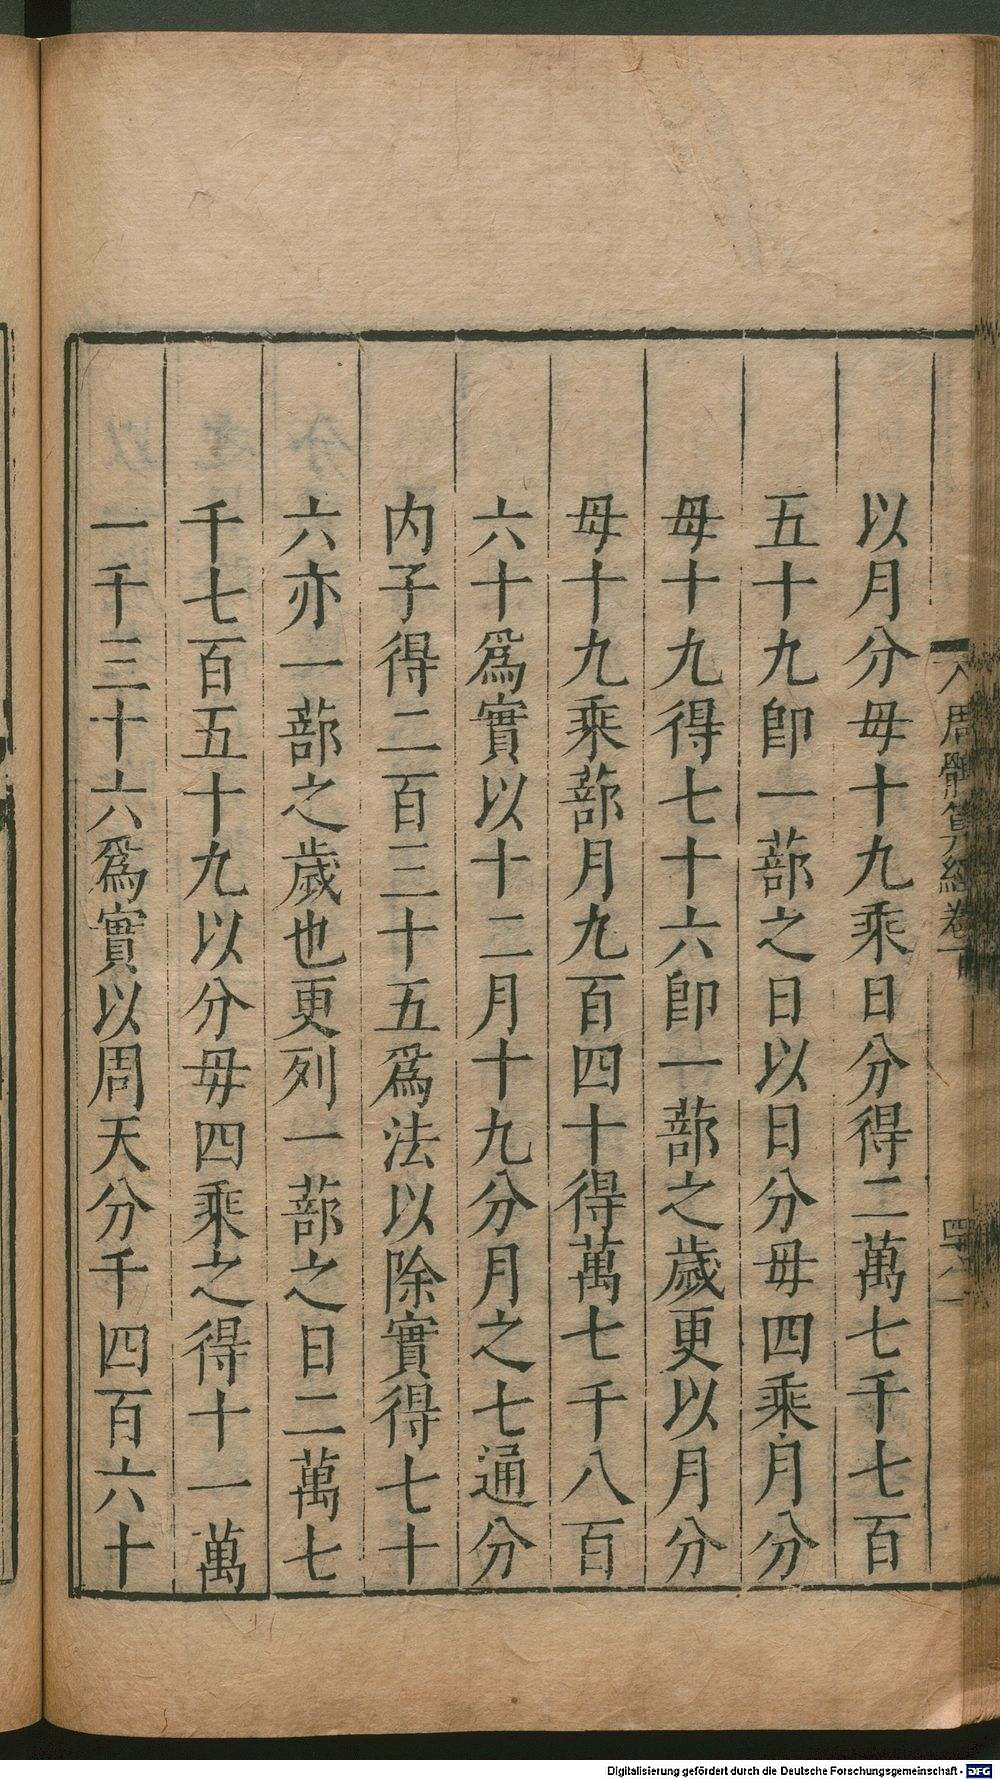 以月分母十九乘日分得二萬七千七百
五十九卽一蔀之日以日分母四乘月分
母十九得七十六卽一蔀之歲更以月分
母十九乘蔀月九百四十得萬七千八百
六十爲實以十二月十九分月之七通分
内子得二百三十五爲法以除實得七十
六亦一蔀之歲也更列一蔀之日二萬七
千七百五十九以分母四乘之得十一萬
一千三十六爲實以周天分千四百六十
周髀算經卷下
Digitalisierung gefördert durch die Deutsche Forschungsgemeinschaft - DFG